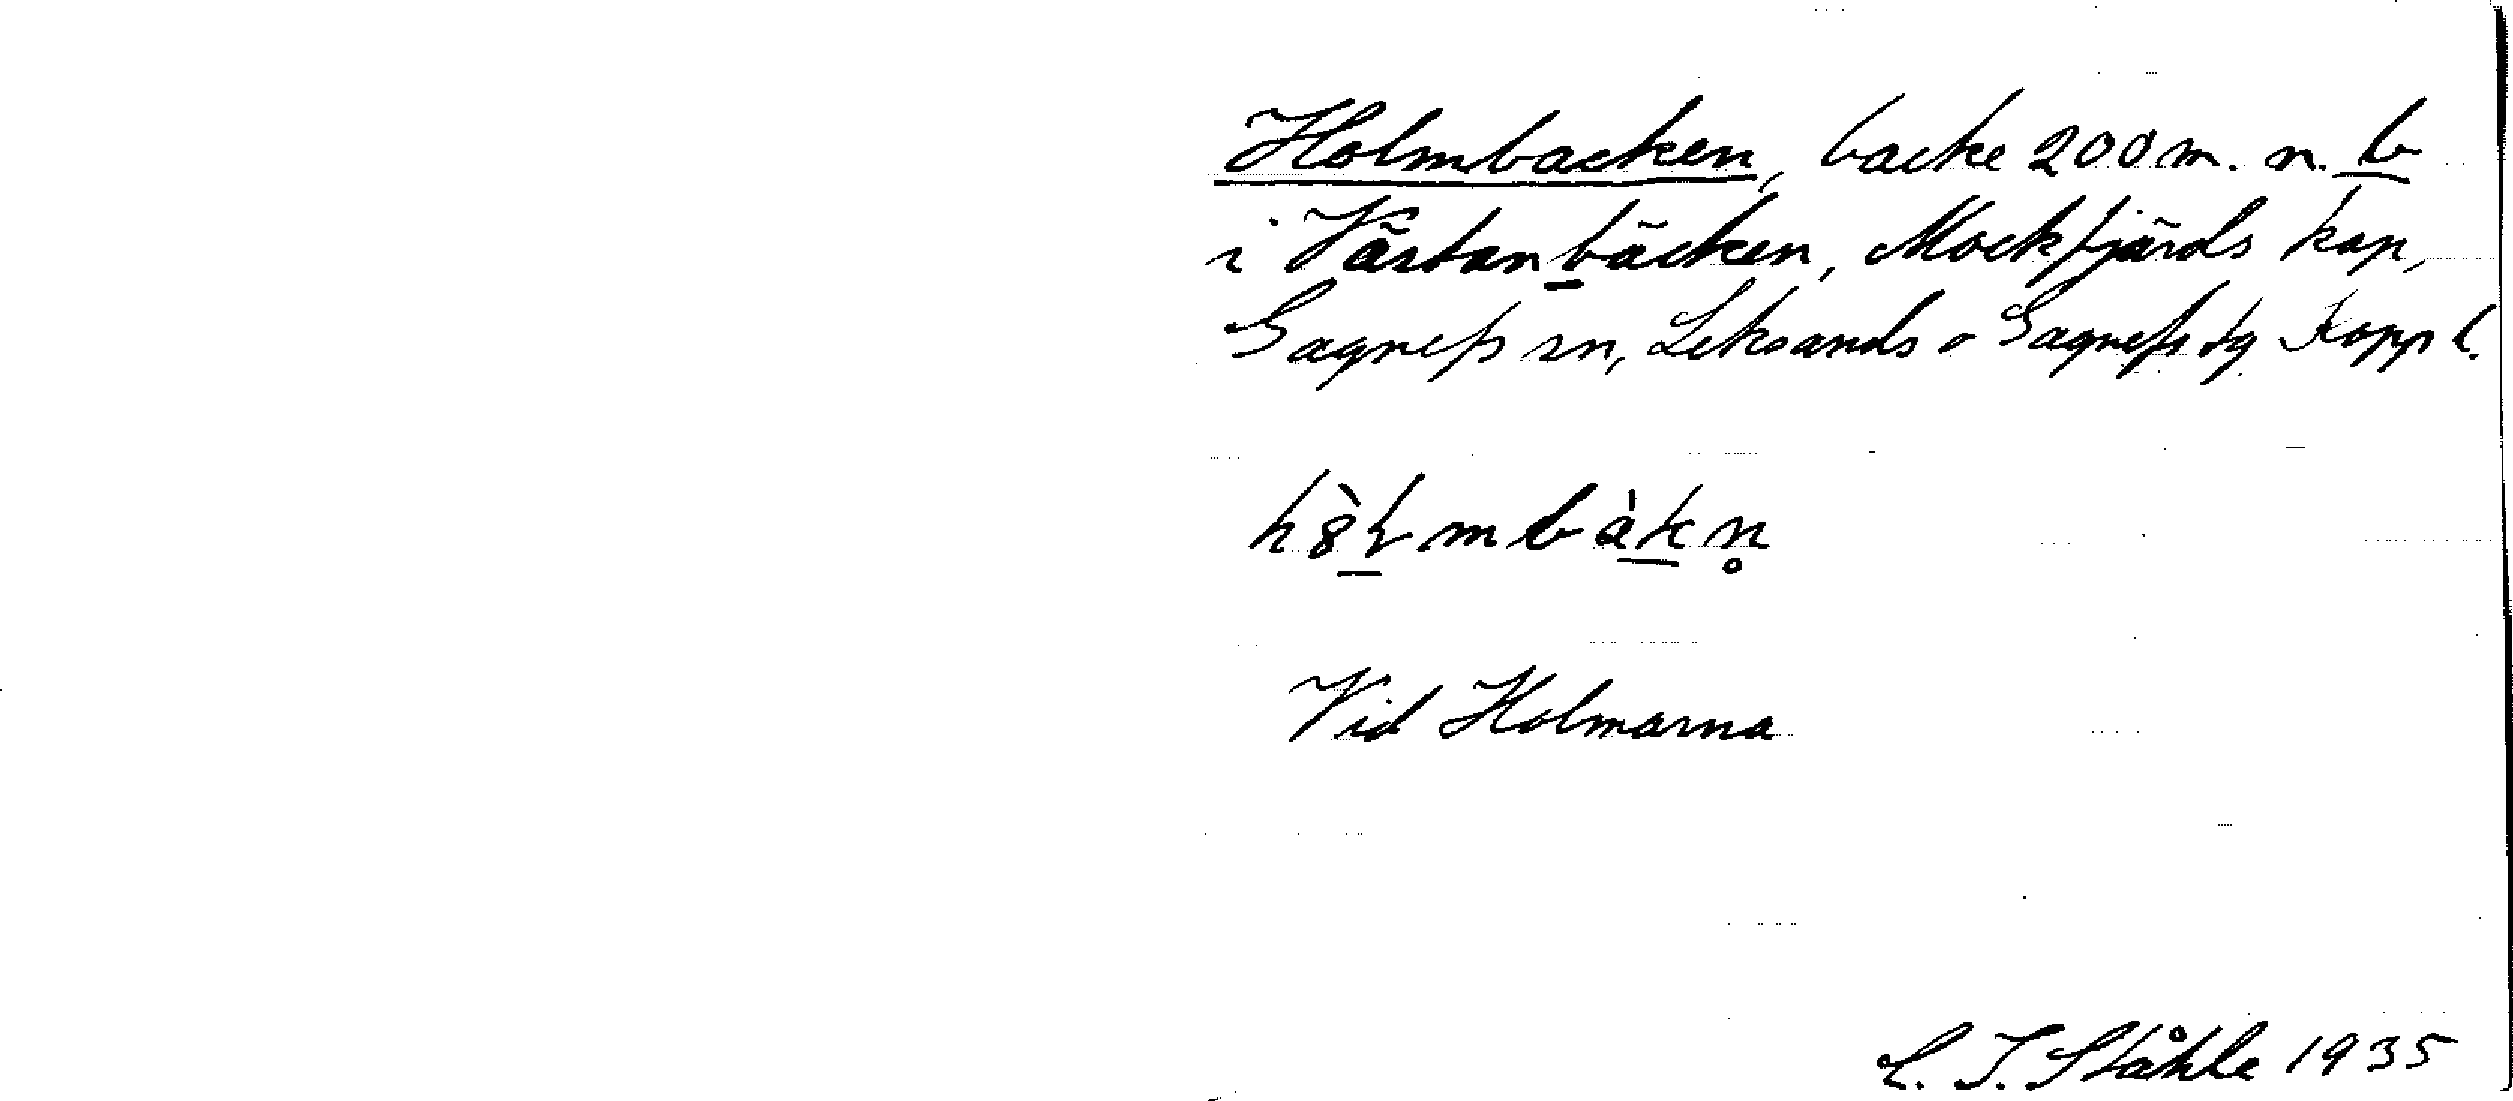 Holmbacken, backe 200 m. n. b
i Västanbäcken, Mockfjärds kap,
Gagnefs sn, Leksands o Gagnefs tg Kopp l.
hȣ̀ɬmbàkn̥
Vid Holmarna
C. I. Ståhle 1935